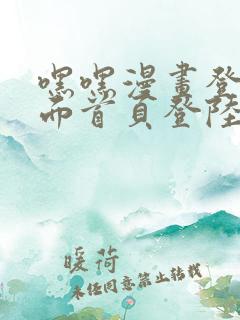 嘿嘿漫畫登
而首頁登陸
暖荷
未任同意禁止转载